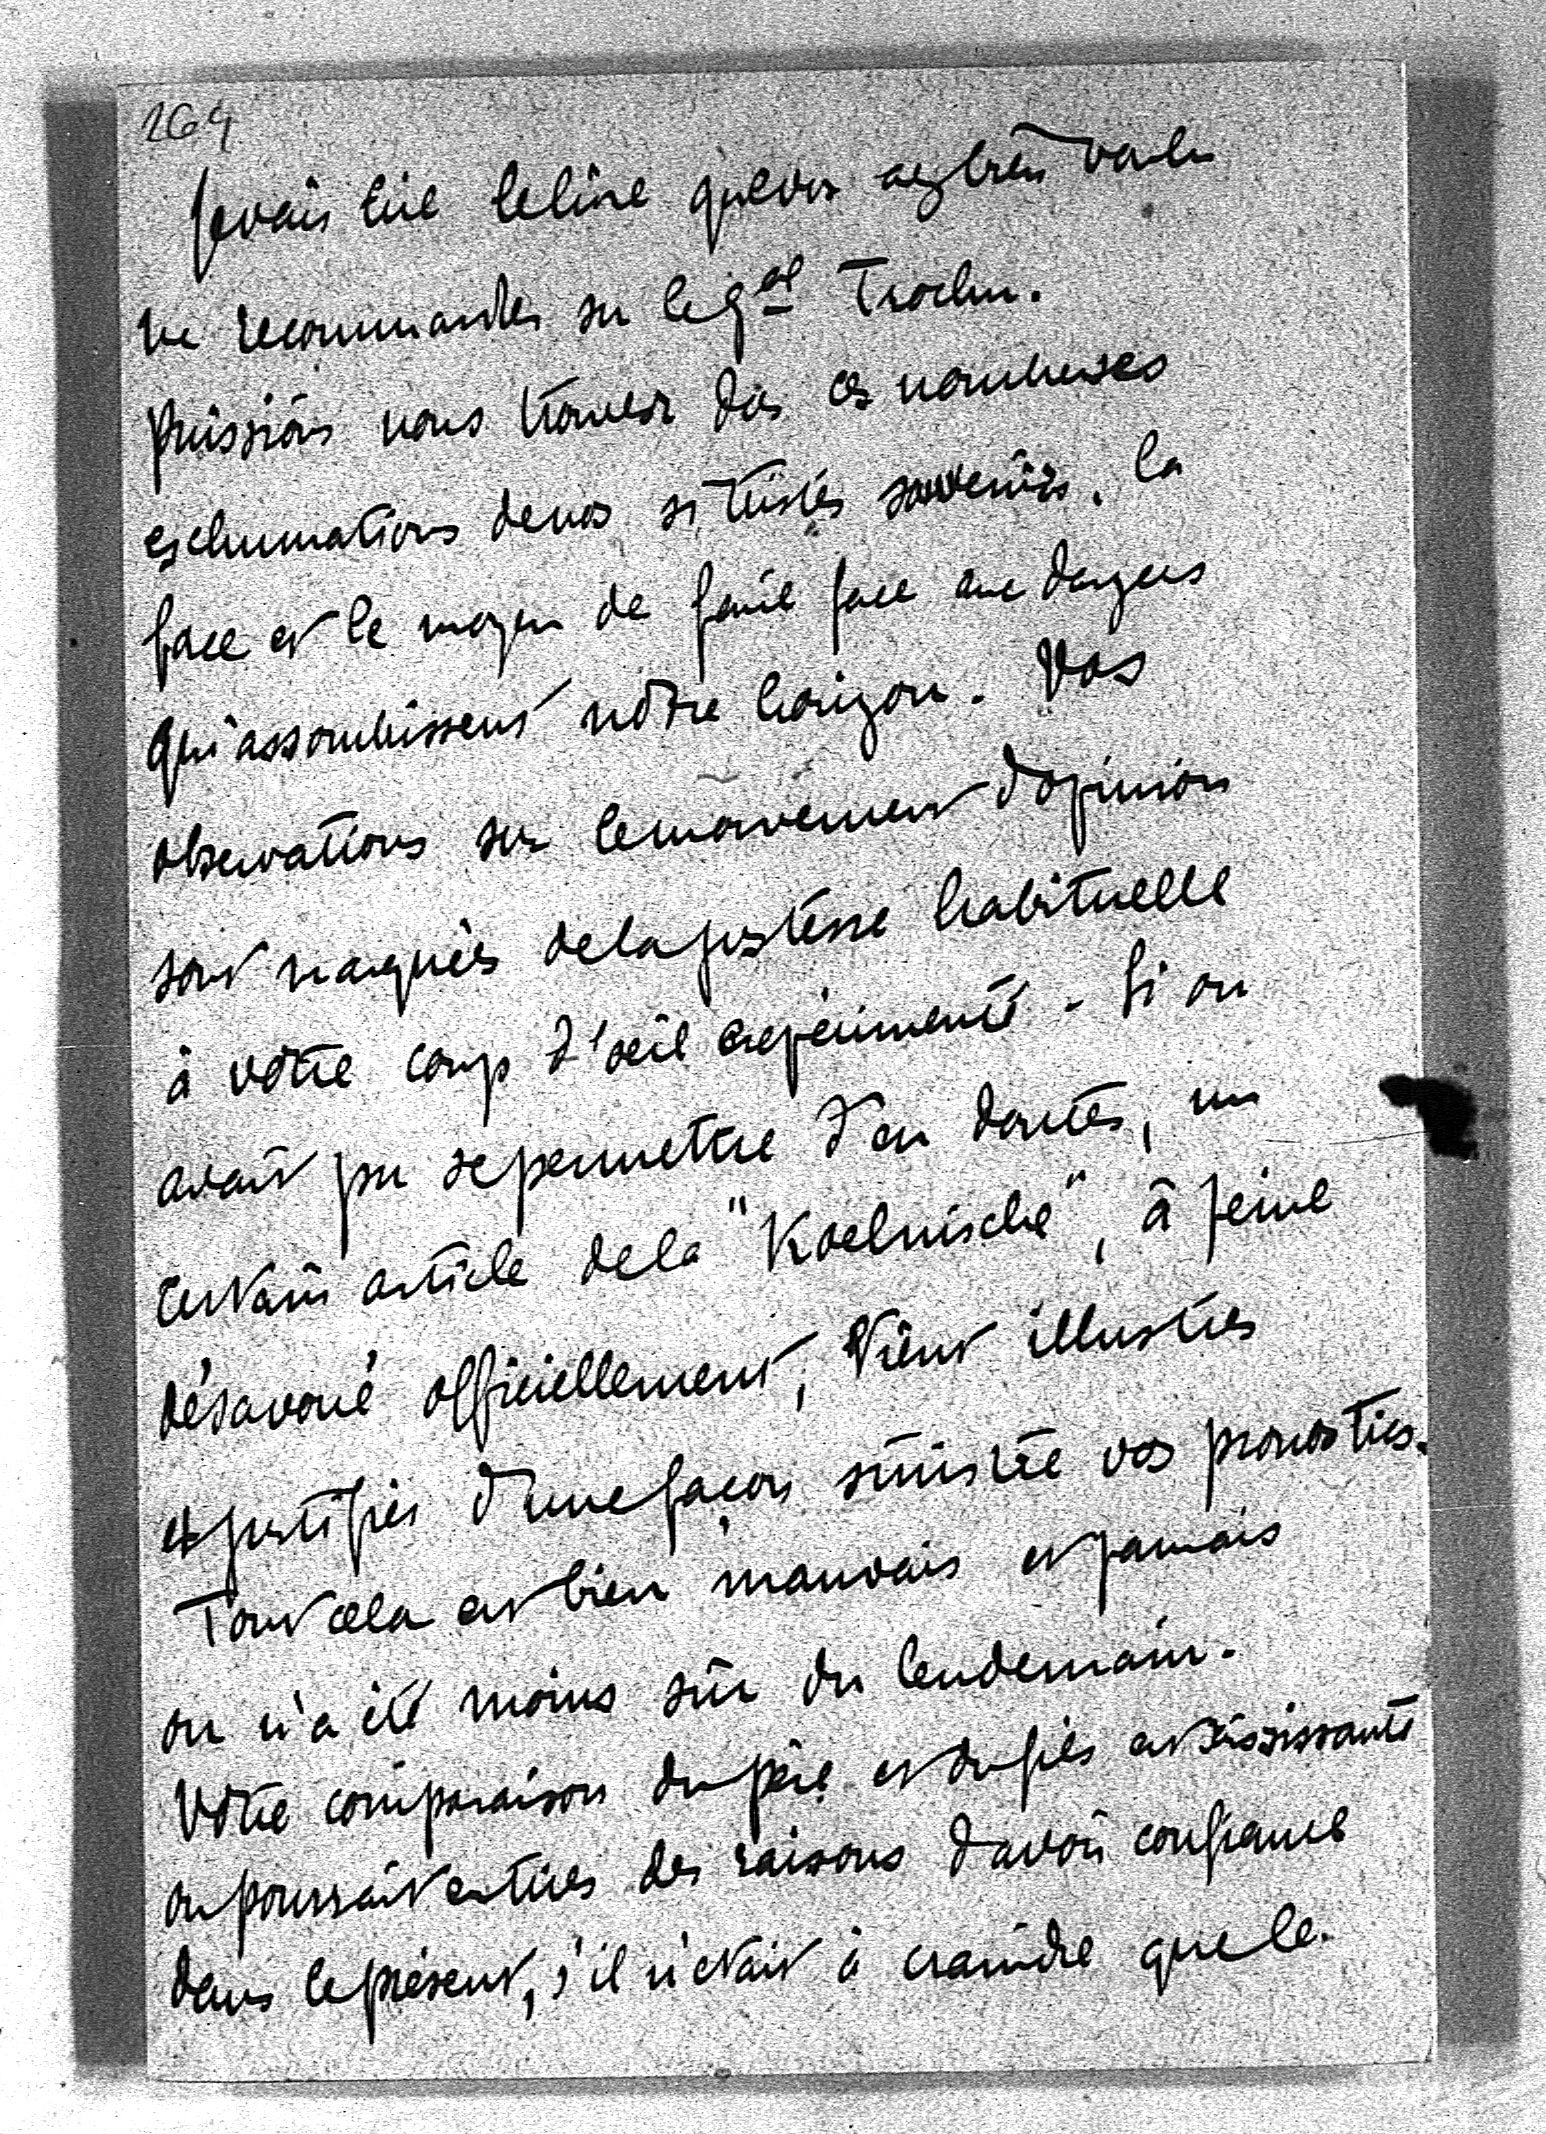 264
Je vais lire le livre que vous avez bien voulu
me recommander sur le gal Trochu.
Puissions nous trouver dans ces nombreuses
exhumations de nos si tristes souvenirs, la
force et le moyen de faire face aux dangers
qui assombrissent notre horizon. Vos
observations sur le mouvement d'opinion
sont marquées de la justesse habituelle
à votre coup d'oeil expérimenté - Si on
avait pu se permettre d'en douter, un
certain article de la "Koelnische", à peine
désavoué officiellement, vient illustrer
et justifier d'une façon sinistre vos pronostics.
Tout cela est bien mauvais et jamais
on n'a été moins sûr du lendemain.
Votre comparaison du père et du fils est saisissante
on pourrait en tirer des raisons d'avoir confiance
dans le présent, s'il n'était à craindre que le